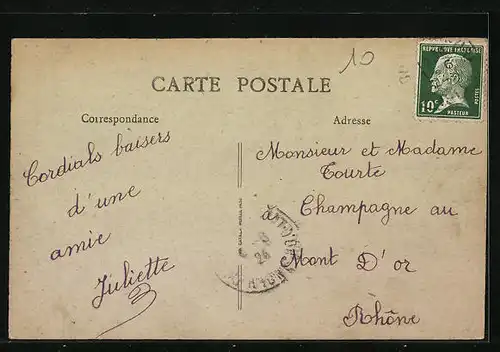 10
CARTE POSTALE
REPUBLIQUE FRANÇAISE
10c
POSTES
PASTEUR
Correspondance
Cordials baisers
d'une
amie
Juliette
Adresse
Monsieur et Madame
Tourte
à Champagne au
Mont D'or
Rhône